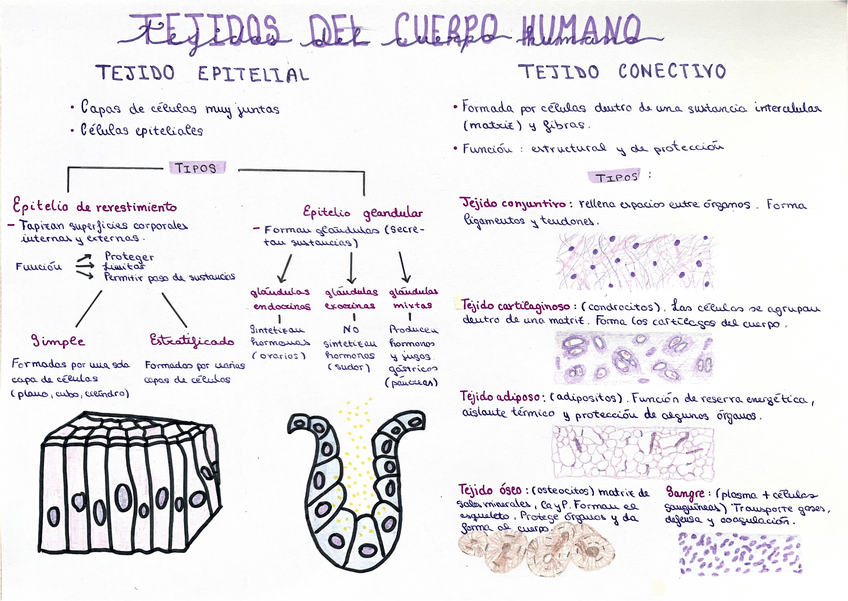 TEJIDOS DEL CUERPO HUMANO
Tejidos del cuerpo humano
TEJIDO EPITELIAL
• Capas de células muy juntas
• Células epiteliales
TIPOS
Epitelio de revestimiento
- Tapizan superficies corporales
internas y externas.
Función
Proteger
limitar
Permitir paso de sustancias
Simple
Formadas por una sola
capa de células
(plano, cubo, cilindro)
Estratificado
Formados por varias
capas de células
Epitelio glandular
- Forman glándulas (secre-
tan sustancias)
glándulas
endocrinas
Sintetizan
hormonas
(ovarios)
glándulas
exocrinas
NO
sintetizan
hormonas
(sudor)
glándulas
mixtas
Producen
hormonas
y jugos
gástricos
(páncreas)
TEJIDO CONECTIVO
• Formada por células dentro de una sustancia intercelular
(matriz) y fibras.
• Función : estructural y de protección
TIPOS :
Tejido conjuntivo : rellena espacios entre órganos. Forma
ligamentos y tendones.
Tejido cartilaginoso : (condrocitos). Las células se agrupan
dentro de una matriz. Forma los cartílagos del cuerpo.
Tejido adiposo : (adipositos). Función de reserva energética,
aislante térmico y protección de algunos órganos.
Tejido óseo : (osteocitos) matriz de
sales minerales, Ca y P. Forman el
esqueleto. Protege órganos y da
forma al cuerpo
Sangre : (plasma + células
sanguíneas) Transporte gases,
defensa y coagulación.